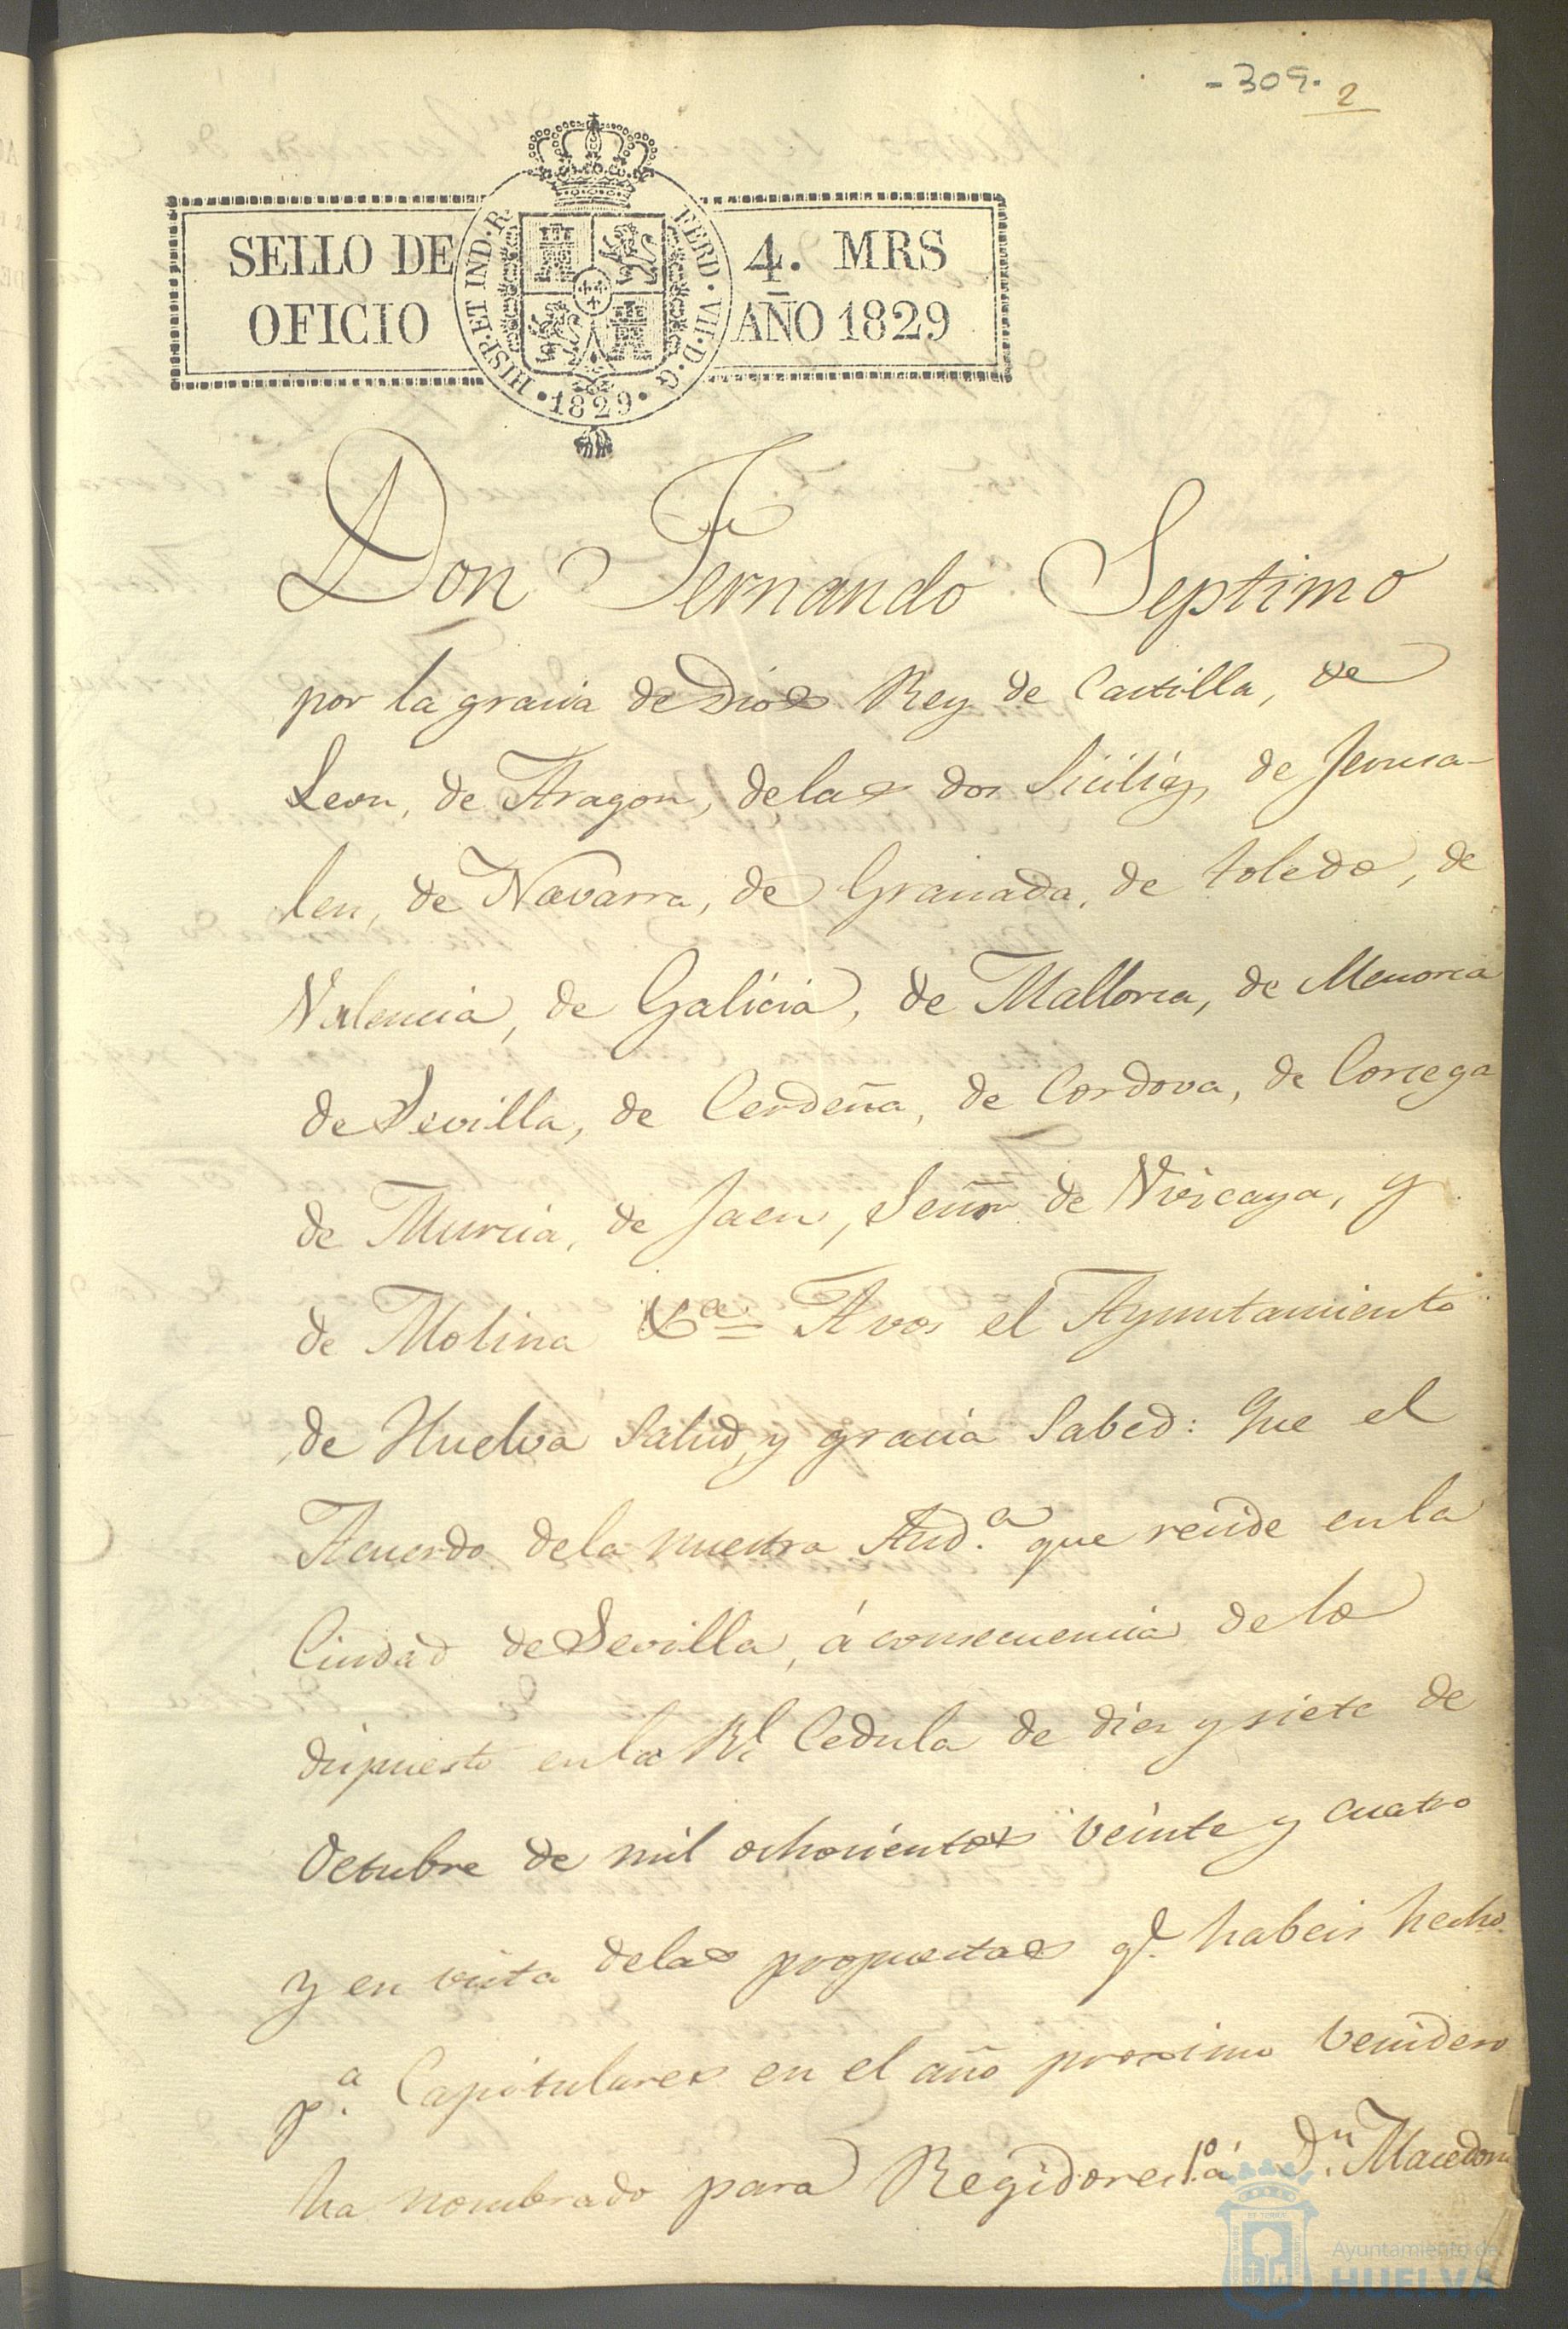 -309. 2
SELLO DE 4. MRS
OFICIO AÑO 1829
HISP·ET IND·R· FERD·VII·D·G·
·1829·
Don Fernando Septimo
por la gracia de Dios Rey de Castilla, de
Leon, de Aragon, delas dos Sicilias, de Jerusa-
len, de Navarra, de Granada, de toledo, de
Valencia, de Galicia, de Mallorca, de Menorca
de Sevilla, de Cerdeña, de Cordova, de Corcega
de Murcia, de Jaen, Señor de Vizcaya, y
de Molina &ª = A vos el Ayuntamiento
de Huelva Salud y gracia Sabed: Que el
Acuerdo dela nuestra Aud.ª que reside enla
Ciudad de Sevilla, á consecuencia de lo
dispuesto enla Rl Cedula de diez y siete de
Octubre de mil ochocientos veinte y cuatro
y en vista delas propuestas q.e habeis hecho
p.ª Capitulares en el año proximo venidero
ha nombrado para Regidores 1º á D.n Macedon
Ayuntamiento de
HUELVA